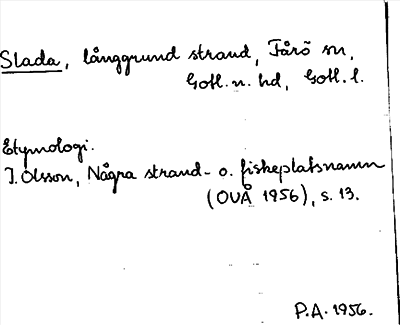 Slada, långgrund strand, Fårö sn,
Gotl. n. hd, Gotl. l.
Etymologi.
I. Olsson, Några strand- o. fiskeplatsnamn
(OUÅ 1956), s. 13.
P.A. 1956.